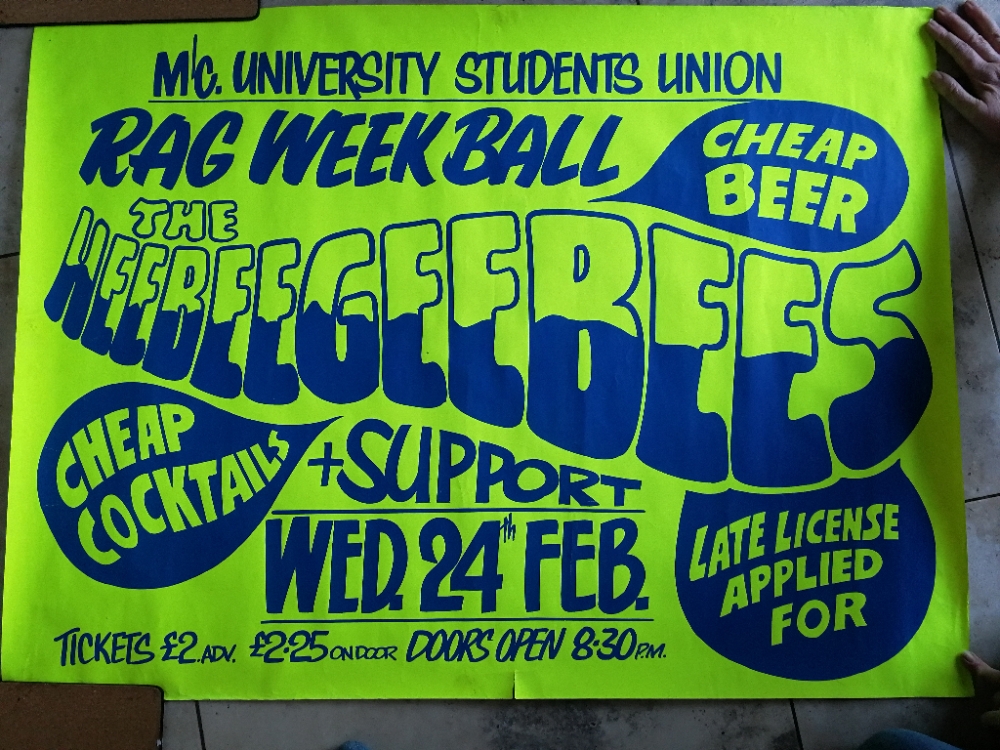 M/c. UNIVERSITY STUDENTS UNION
RAG WEEK BALL
CHEAP
BEER
THE
HEEBEEGEEBEES
CHEAP
COCKTAILS
+SUPPORT
WED. 24th FEB.
LATE LICENSE
APPLIED
FOR
TICKETS £2. ADV. £2·25 ON DOOR DOORS OPEN 8·30 P.M.